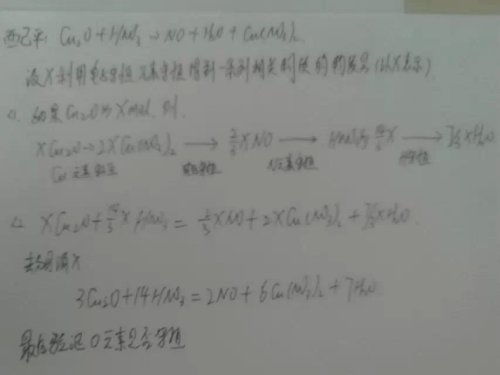 要配平 Cu₂O + HNO₃ → NO + H₂O + Cu(NO₃)₂
设X利用电子守恒、元素守恒得到一系列相关的物质的量(以X表示)
1. 如果Cu₂O为Xmol, 则
XCu₂O→2XCu(NO₃)₂ → 2/3XNO → HNO₃为14/3X → 7/3XH₂O
Cu元素守恒 电子守恒 N元素守恒 H守恒
2. XCu₂O + 14/3X HNO₃ = 2/3XNO + 2XCu(NO₃)₂ + 7/3XH₂O
去分母消X
3Cu₂O + 14HNO₃ = 2NO + 6Cu(NO₃)₂ + 7H₂O
最后验证O元素是否守恒